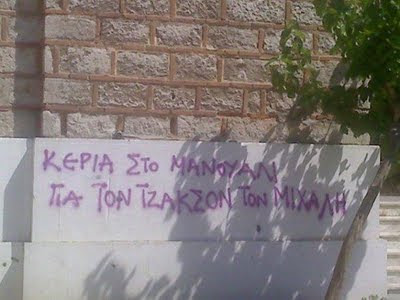 ΚΕΡΙΑ ΣΤΟ ΜΑΝΟΥΑΛΙ
ΓΙΑ ΤΟΝ ΤΖΑΚΣΟΝ ΤΟΝ ΜΙΧΑΛΗ